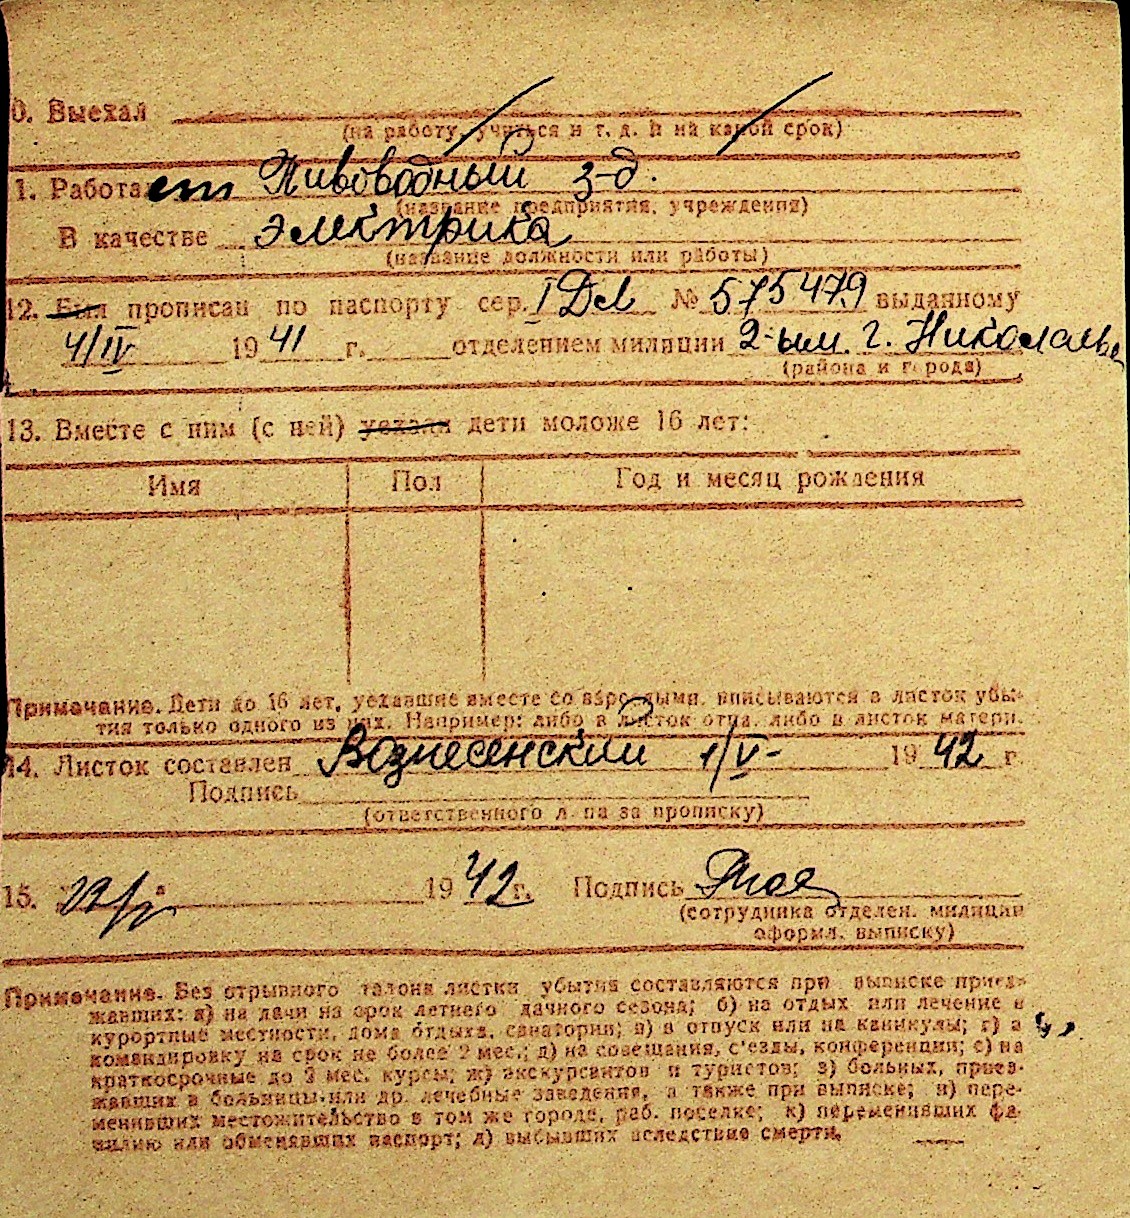 0. Выехал
(на работу, учиться и т. д. и на какой срок)
1. Работает Пивоводный з-д.
(название предприятия, учреждения)
В качестве электрика
(название должности или работы)
12. Был прописан по паспорту сер. I № 575479 выданному
4/IV 1941 г. отделением милиции 2-ым. г. Николаева
(района и города)
13. Вместе с ним (с ней) уехали дети моложе 16 лет:
Имя Пол Год и месяц рождения
Примечание. Дети до 16 лет, уехавшие вместе со взрослыми, вписываются в листок убы-
тия только одного из них. Например: либо в листок отца, либо в листок матери.
14. Листок составлен Вознесенский 1/V- 1942 г.
Подпись
(ответственного лица за прописку)
15. 1942 г. Подпись
(сотрудника отделен. милиции
оформл. выписку)
Примечание. Без отрывного талона листки убытия составляются при выписке приез-
жавших: а) на дачи на срок летнего дачного сезона; б) на отдых или лечение в
курортные местности, дома отдыха, санатории; в) в отпуск или на каникулы; г) в
командировку на срок не более 2 мес.; д) на совещания, с'езды, конференции; е) на
краткосрочные до 3 мес. курсы; ж) экскурсантов и туристов; з) больных, приез-
жавших в больницы или др. лечебные заведения, а также при выписке; и) пере-
менивших местожительство в том же городе, раб. поселке; к) переменивших фа-
милию или обменявших паспорт; л) выбывших вследствие смерти.